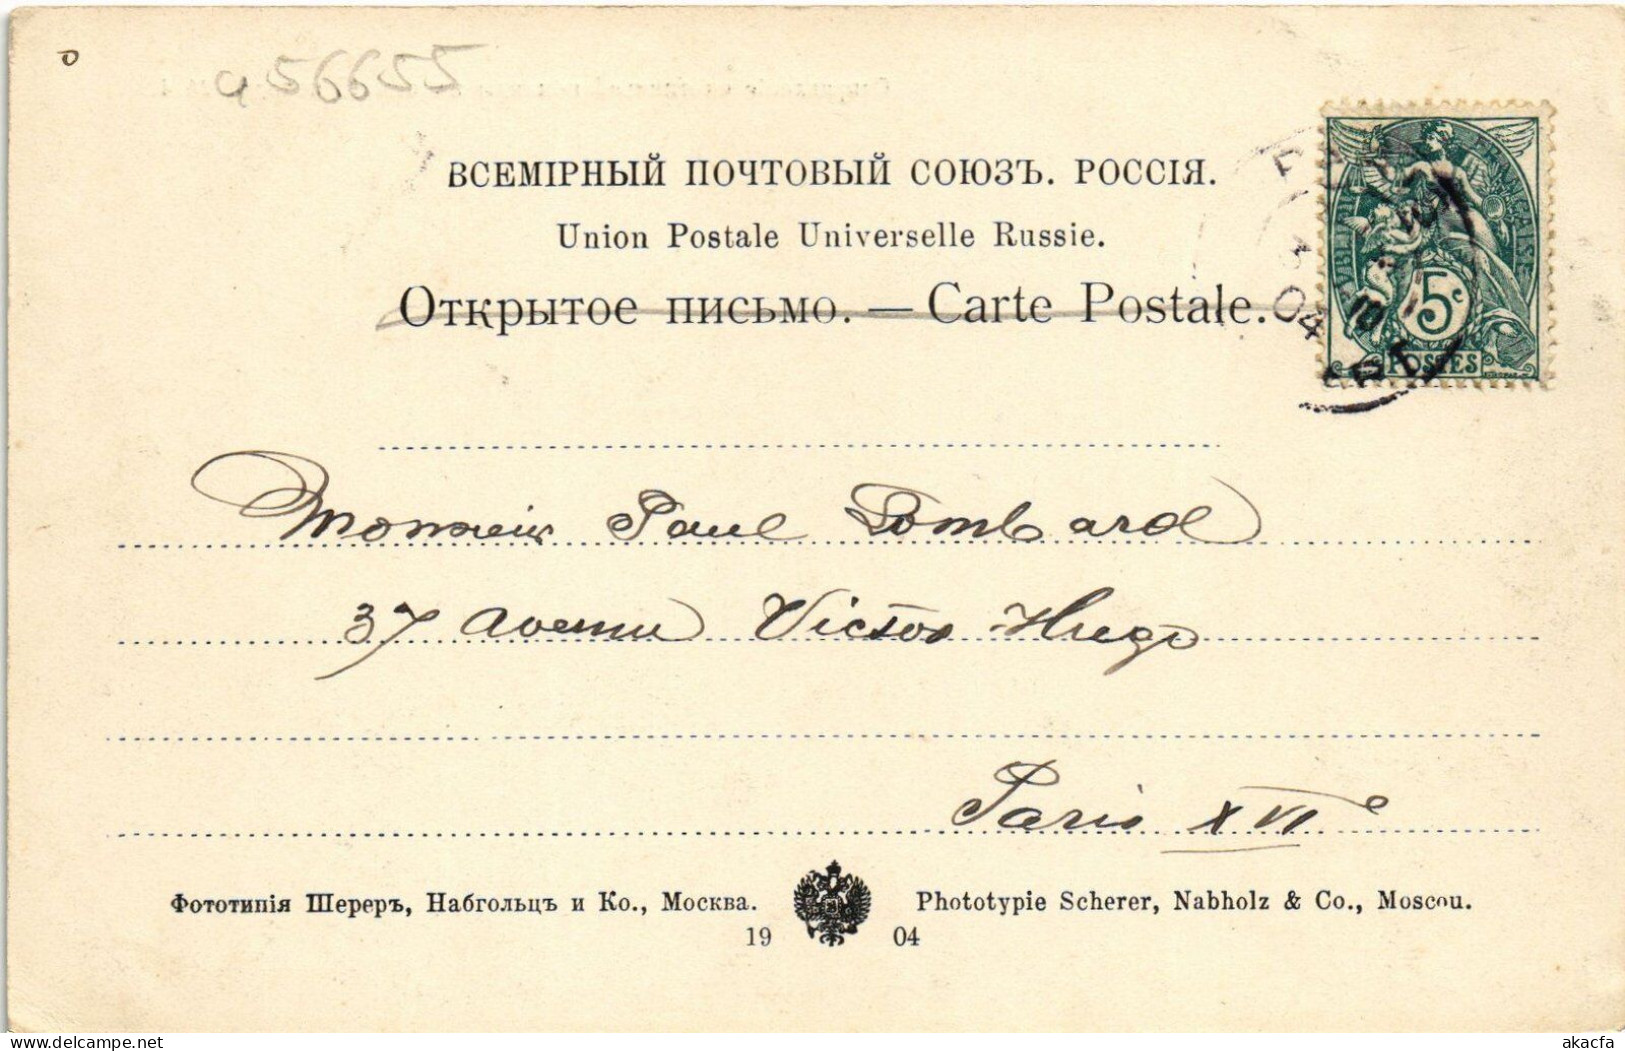 a56655
ВСЕМІРНЫЙ ПОЧТОВЫЙ СОЮЗЪ. РОССІЯ.
Union Postale Universelle Russie.
Открытое письмо. — Carte Postale.
RÉPUBLIQUE FRANÇAISE
5c
POSTES
04
Monsieur Paul Lombard
37 avenue Victor Hugo
Paris XVIe
Фототипія Шереръ, Набгольцъ и Ко., Москва.
Phototypie Scherer, Nabholz & Co., Moscou.
19 04
akacfa